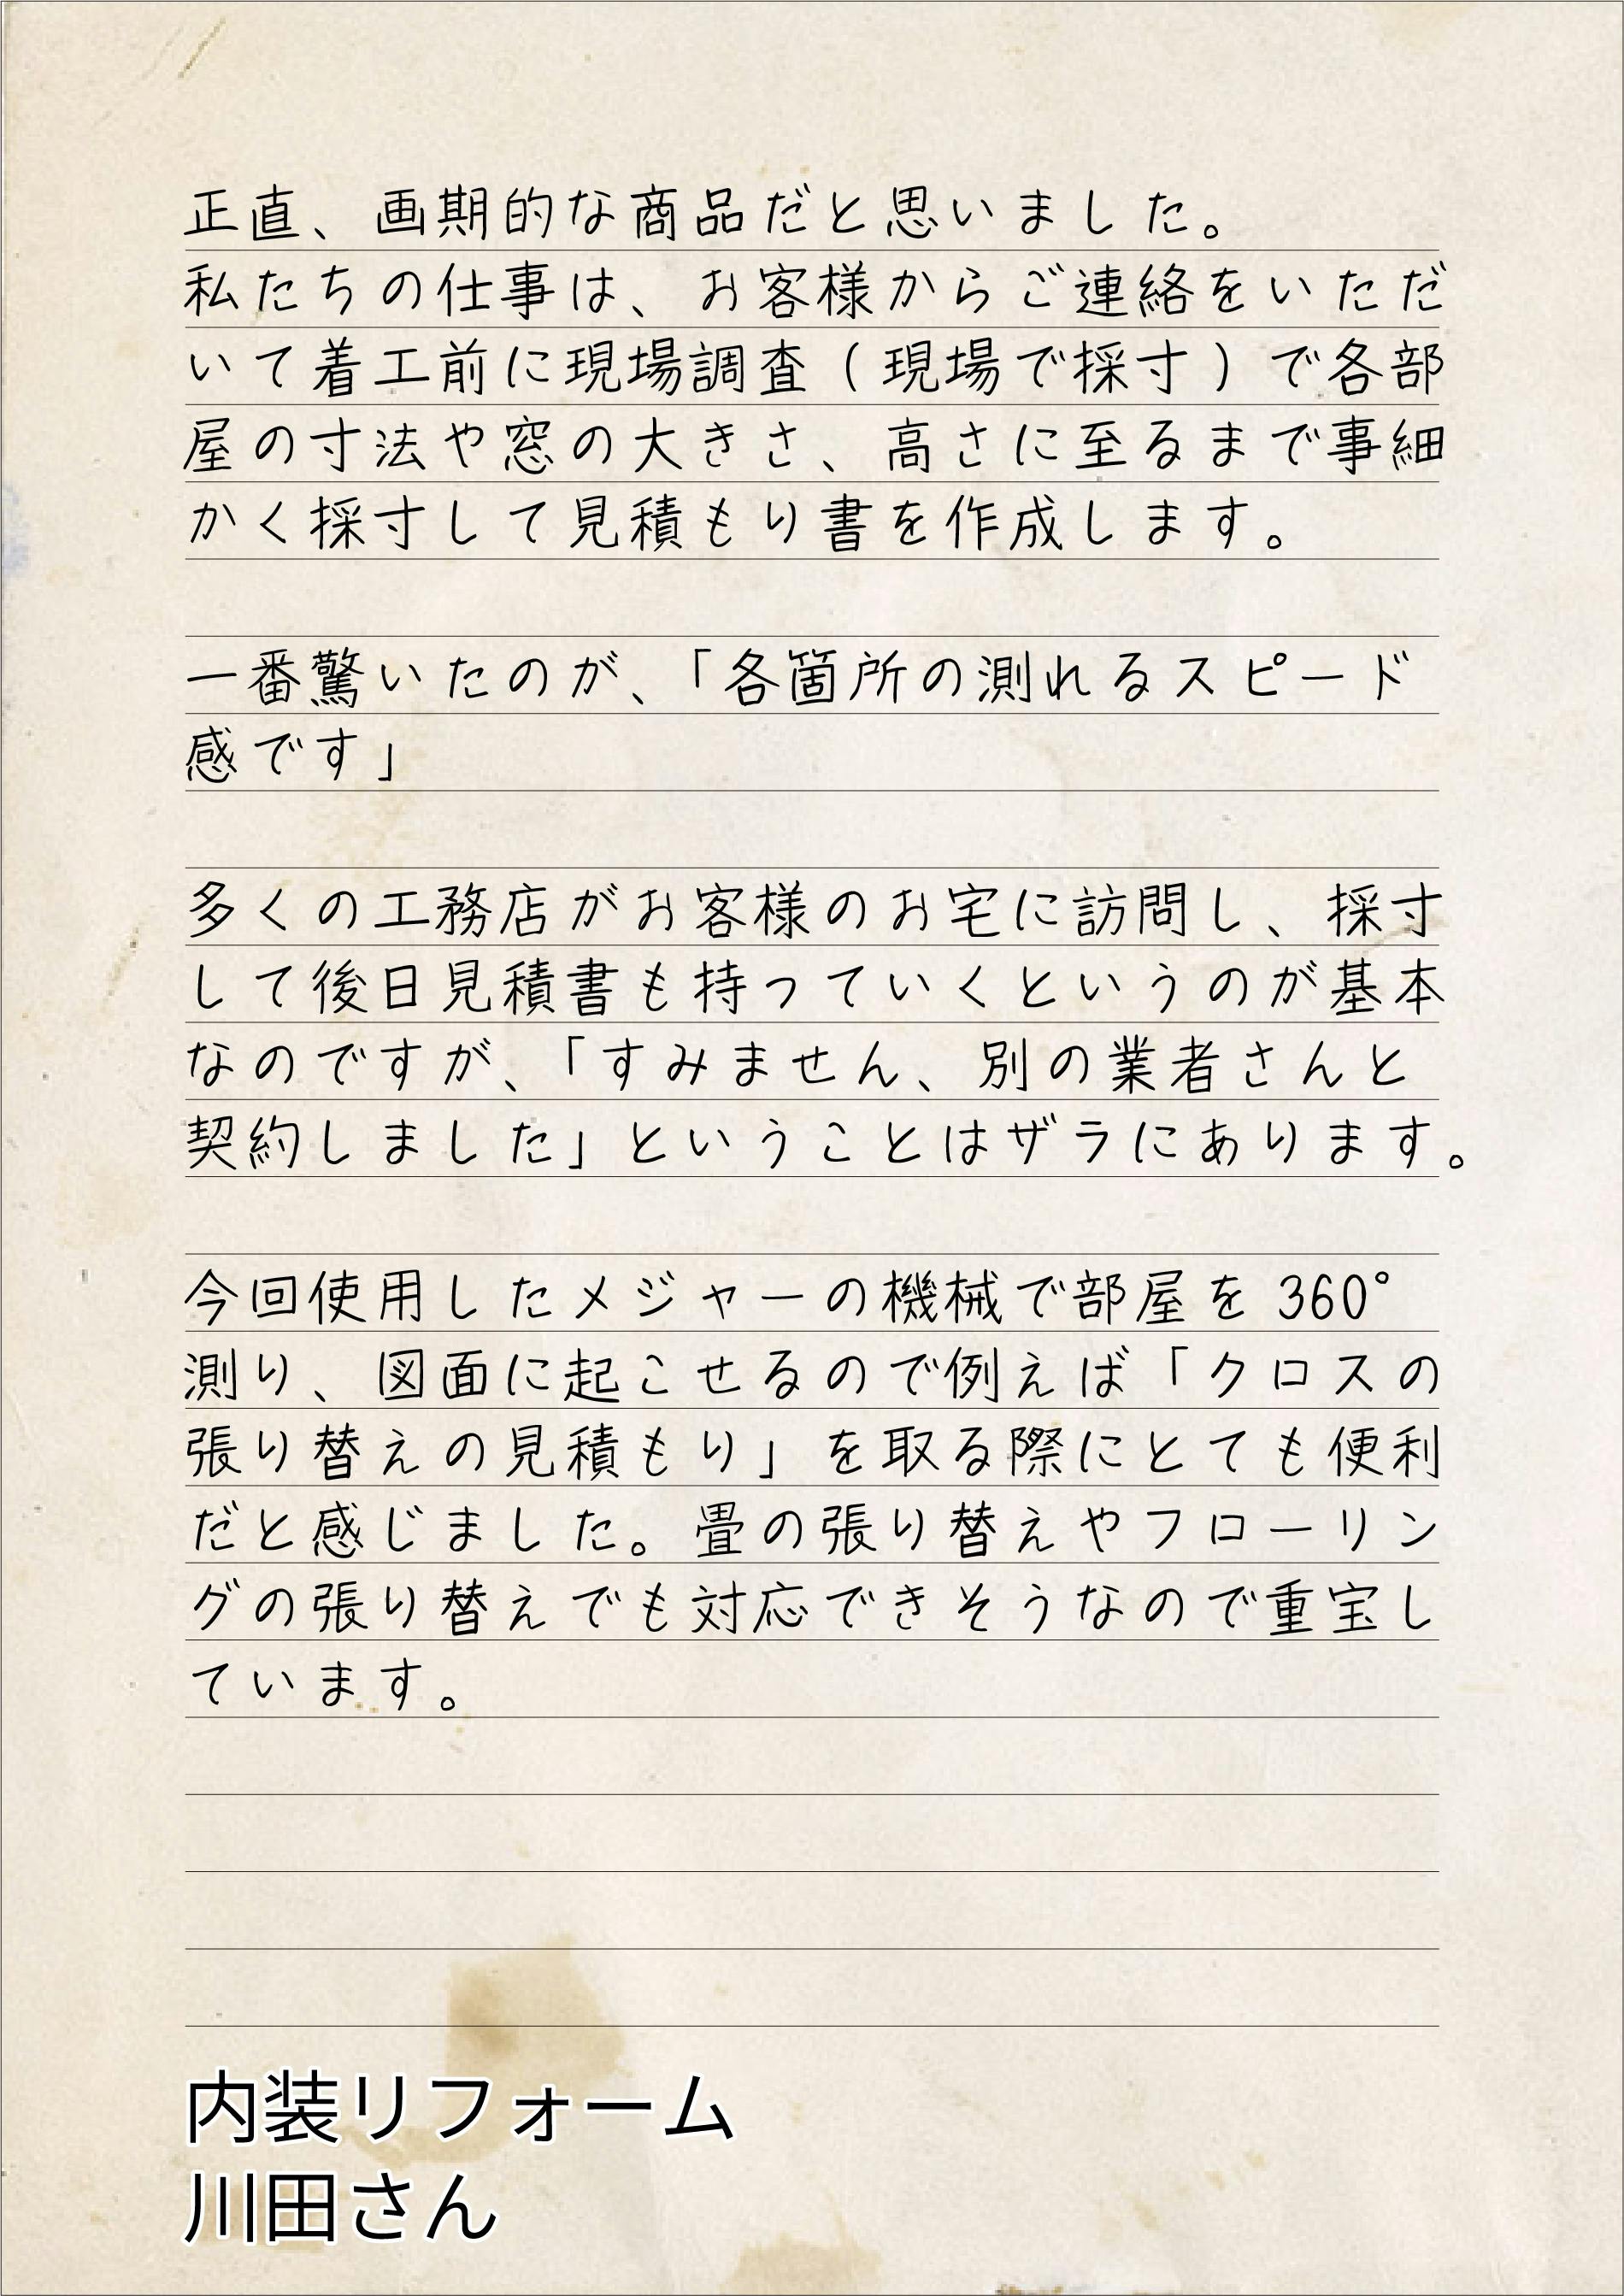 正直、画期的な商品だと思いました。
私たちの仕事は、お客様からご連絡をいただ
いて着工前に現場調査(現場で採寸)で各部
屋の寸法や窓の大きさ、高さに至るまで事細
かく採寸して見積もり書を作成します。
一番驚いたのが、「各箇所の測れるスピード
感です」
多くの工務店がお客様のお宅に訪問し、採寸
して後日見積書も持っていくというのが基本
なのですが、「すみません、別の業者さんと
契約しました」ということはザラにあります。
今回使用したメジャーの機械で部屋を 360°
測り、図面に起こせるので例えば「クロスの
張り替えの見積もり」を取る際にとても便利
だと感じました。畳の張り替えやフローリン
グの張り替えでも対応できそうなので重宝し
ています。
内装リフォーム
川田さん